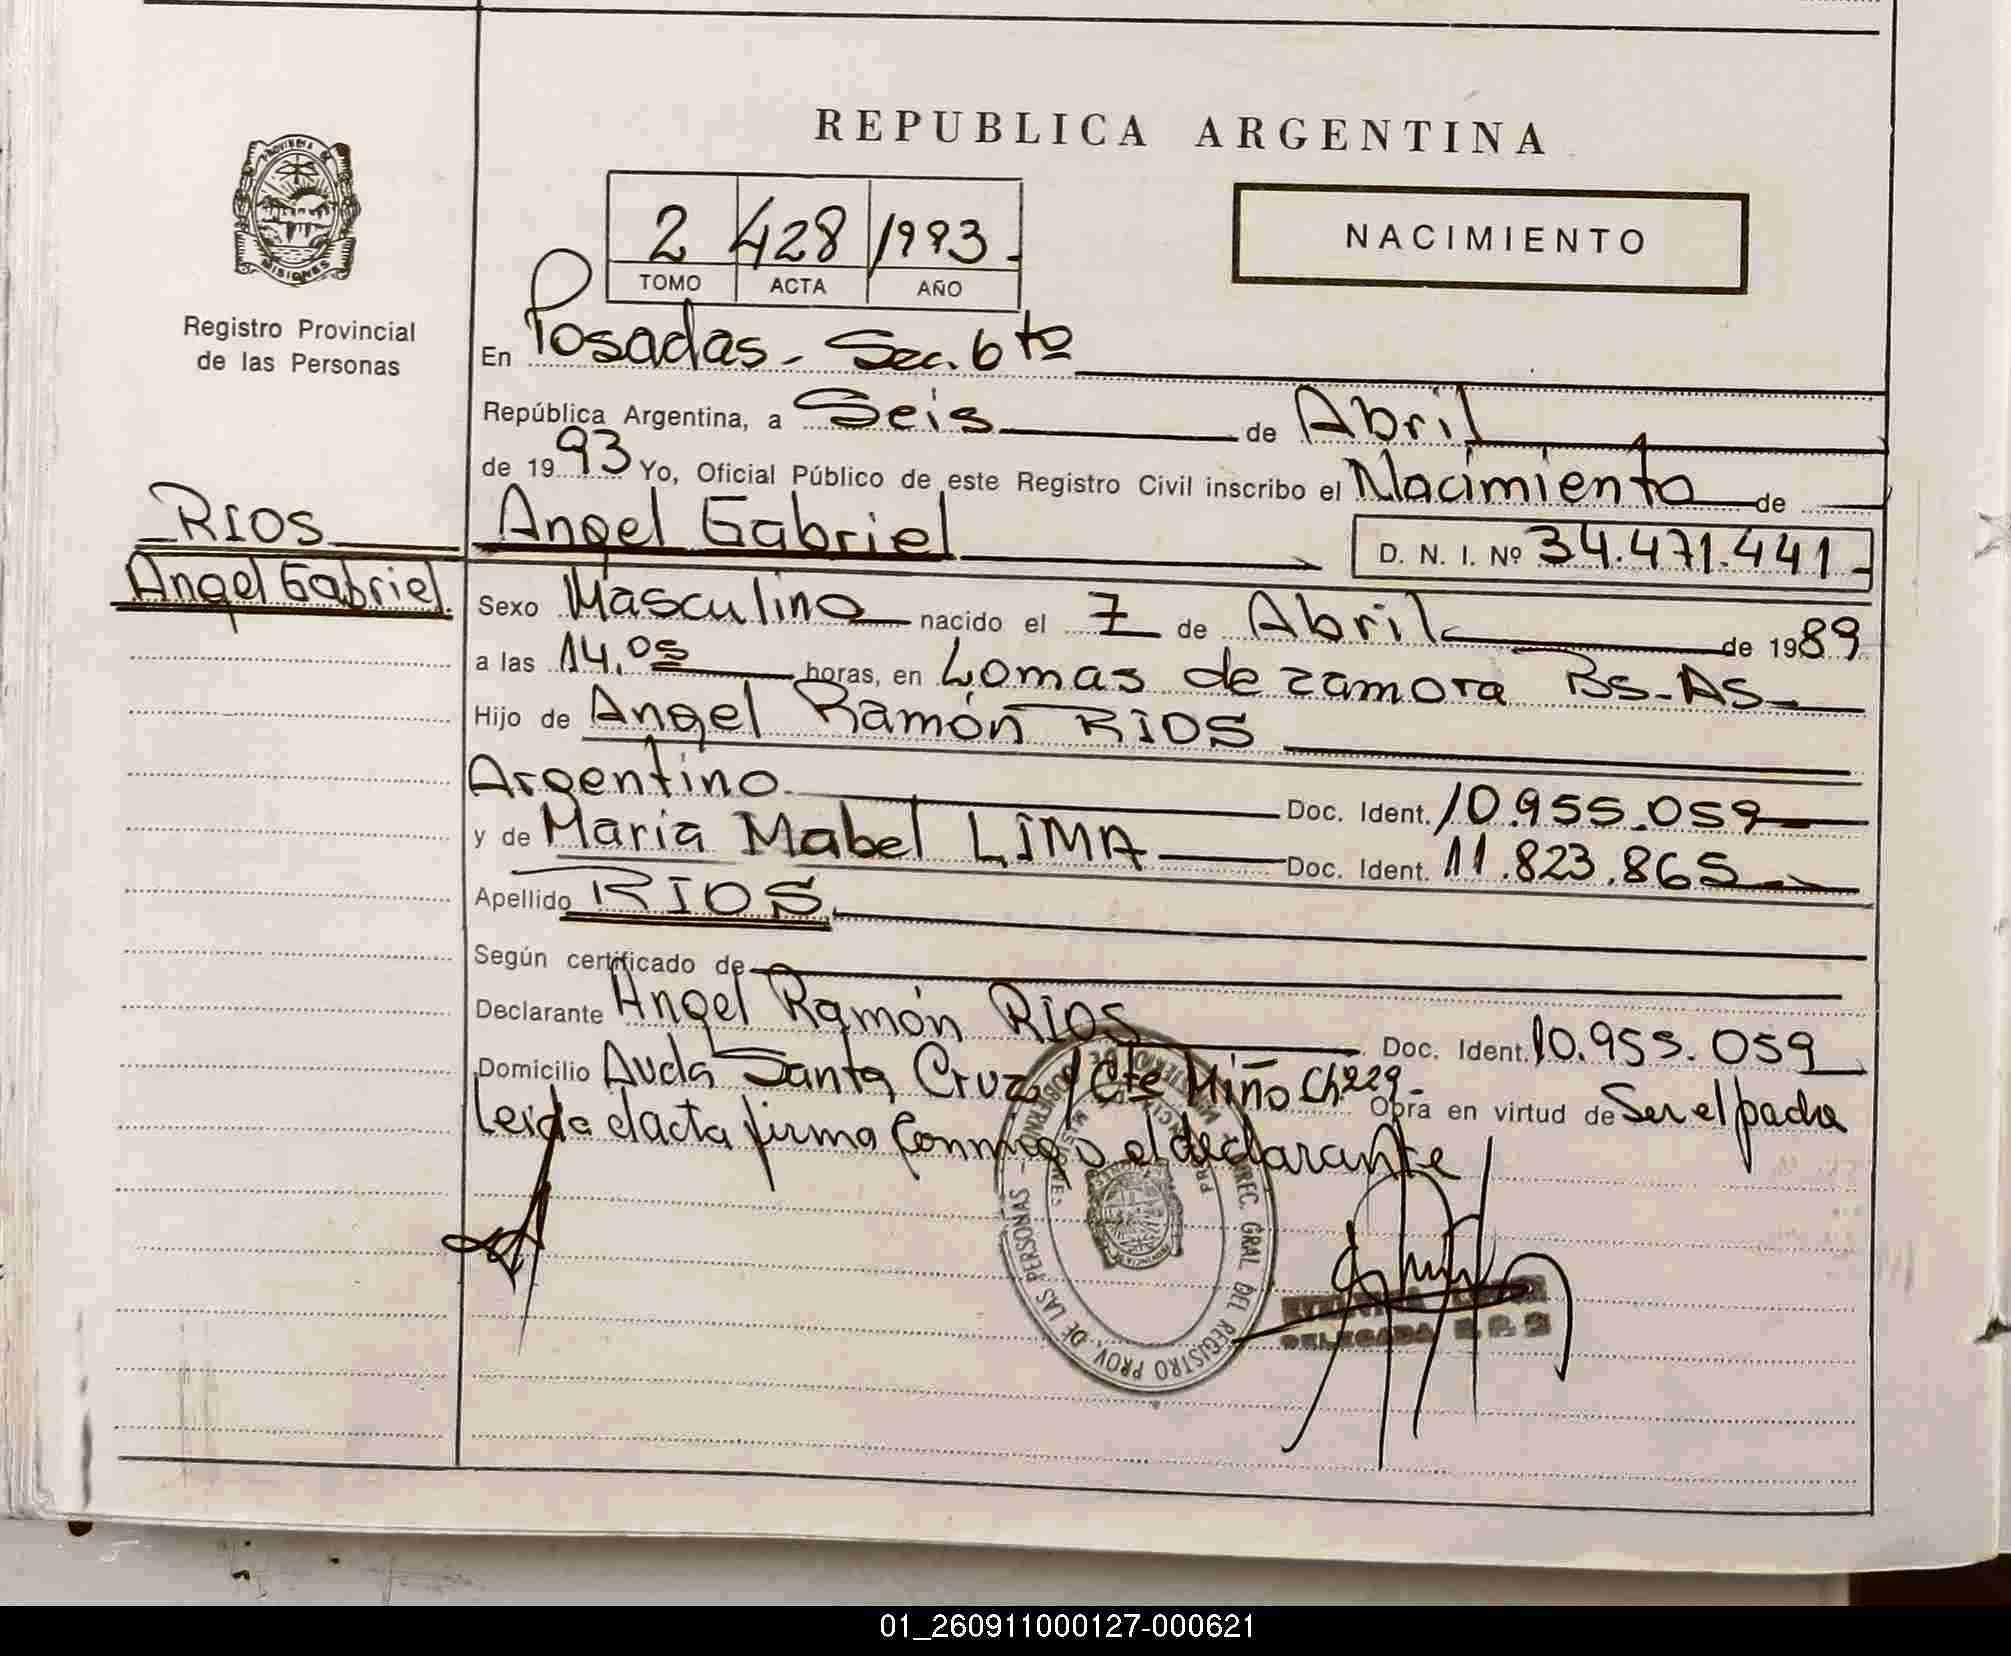 REPUBLICA ARGENTINA
PROVINCIA DE
MISIONES
Registro Provincial
de las Personas
2 428 1993.
TOMO ACTA AÑO
NACIMIENTO
En Posadas - Sec. 6to
República Argentina, a Seis de Abril
de 1993 Yo, Oficial Público de este Registro Civil inscribo el Nacimiento de
RIOS
Angel Gabriel
Angel Gabriel D. N. I. Nº 34.471.441
Sexo Masculino nacido el 7 de Abril de 1989
a las 14.05 horas, en Lomas de Zamora Bs-As
Hijo de Angel Ramón RIOS
Argentino Doc. Ident. 10.955.059
y de Maria Mabel LIMA Doc. Ident. 11.823.865
Apellido RIOS
Según certificado de
Declarante Angel Ramón RIOS Doc. Ident. 10.955.059
Domicilio Avda Santa Cruz y Cte Miño Ch229 Obra en virtud de Ser el padre
Leida el acta firma conmigo el declarante
DIREC. GRAL DEL REGISTRO PROV. DE LAS PERSONAS
DELEGADA
01_260911000127-000621